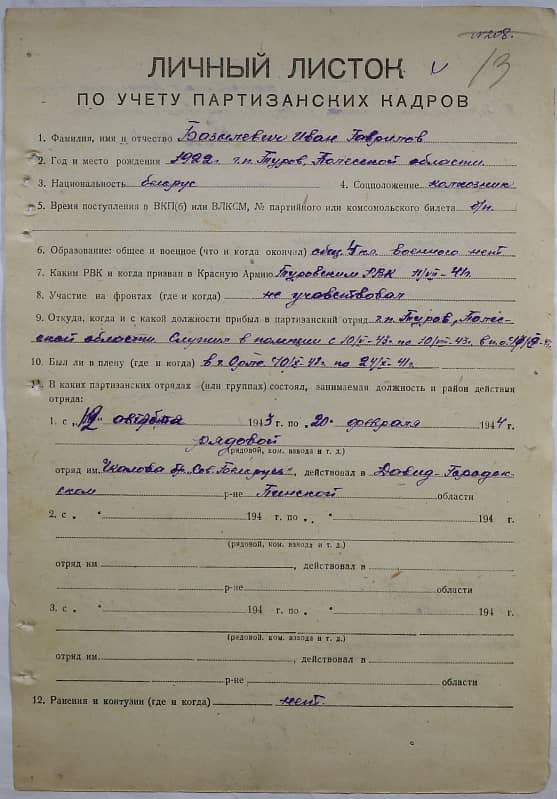 №208.
13
ЛИЧНЫЙ ЛИСТОК
ПО УЧЕТУ ПАРТИЗАНСКИХ КАДРОВ
1. Фамилия, имя и отчество Базылевич Иван Гаврилов
2. Год и место рождения 1922 г. г.п. Туров, Полесской области
3. Национальность белорус 4. Соцположение колхозник
5. Время поступления в ВКП(б) или ВЛКСМ, № партийного или комсомольского билета б/п
6. Образование: общее и военное (что и когда окончил) общ. 4 кл. военного нет
7. Каким РВК и когда призван в Красную Армию Туровским РВК 11/VII-41г.
8. Участие на фронтах (где и когда) не учавствовал
9. Откуда, когда и с какой должности прибыл в партизанский отряд г.п. Туров, Полес-
ской области Служил в полиции с по
10. Был ли в плену (где и когда) в г. по
11. В каких партизанских отрядах (или группах) состоял, занимаемая должность и район действия
отряда:
1. с „12" августа 1943 г. по „20" февраля 1944 г.
рядовой
(рядовой, ком. взвода и т. д.)
отряд им. Чкалова бр. „Сов. Беларусь", действовал в Давид-Городок-
ском р-не Пинской области
2. с „ " 194 г. по „ " 194 г.
(рядовой, ком. взвода и т. д.)
отряд им. , действовал в
р-не области
3. с „ " 194 г. по „ " 194 г.
(рядовой, ком. взвода и т. д.)
отряд им. , действовал в
р-не области
12. Ранения и контузии (где и когда) нет.